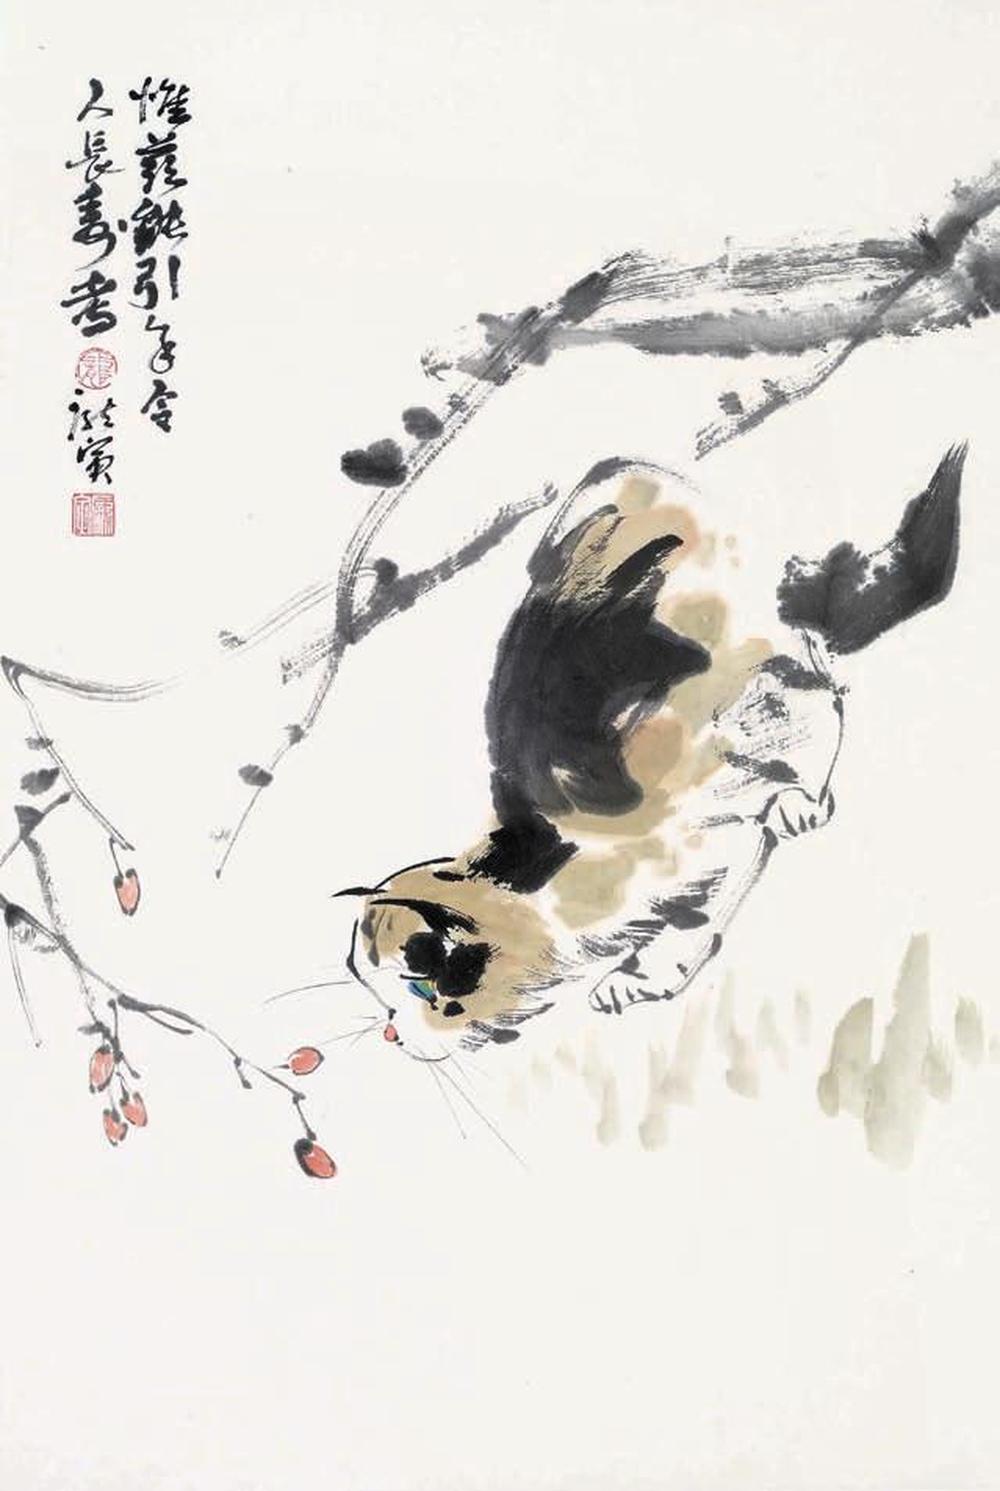 惟茲能引年令
人長壽考
寅